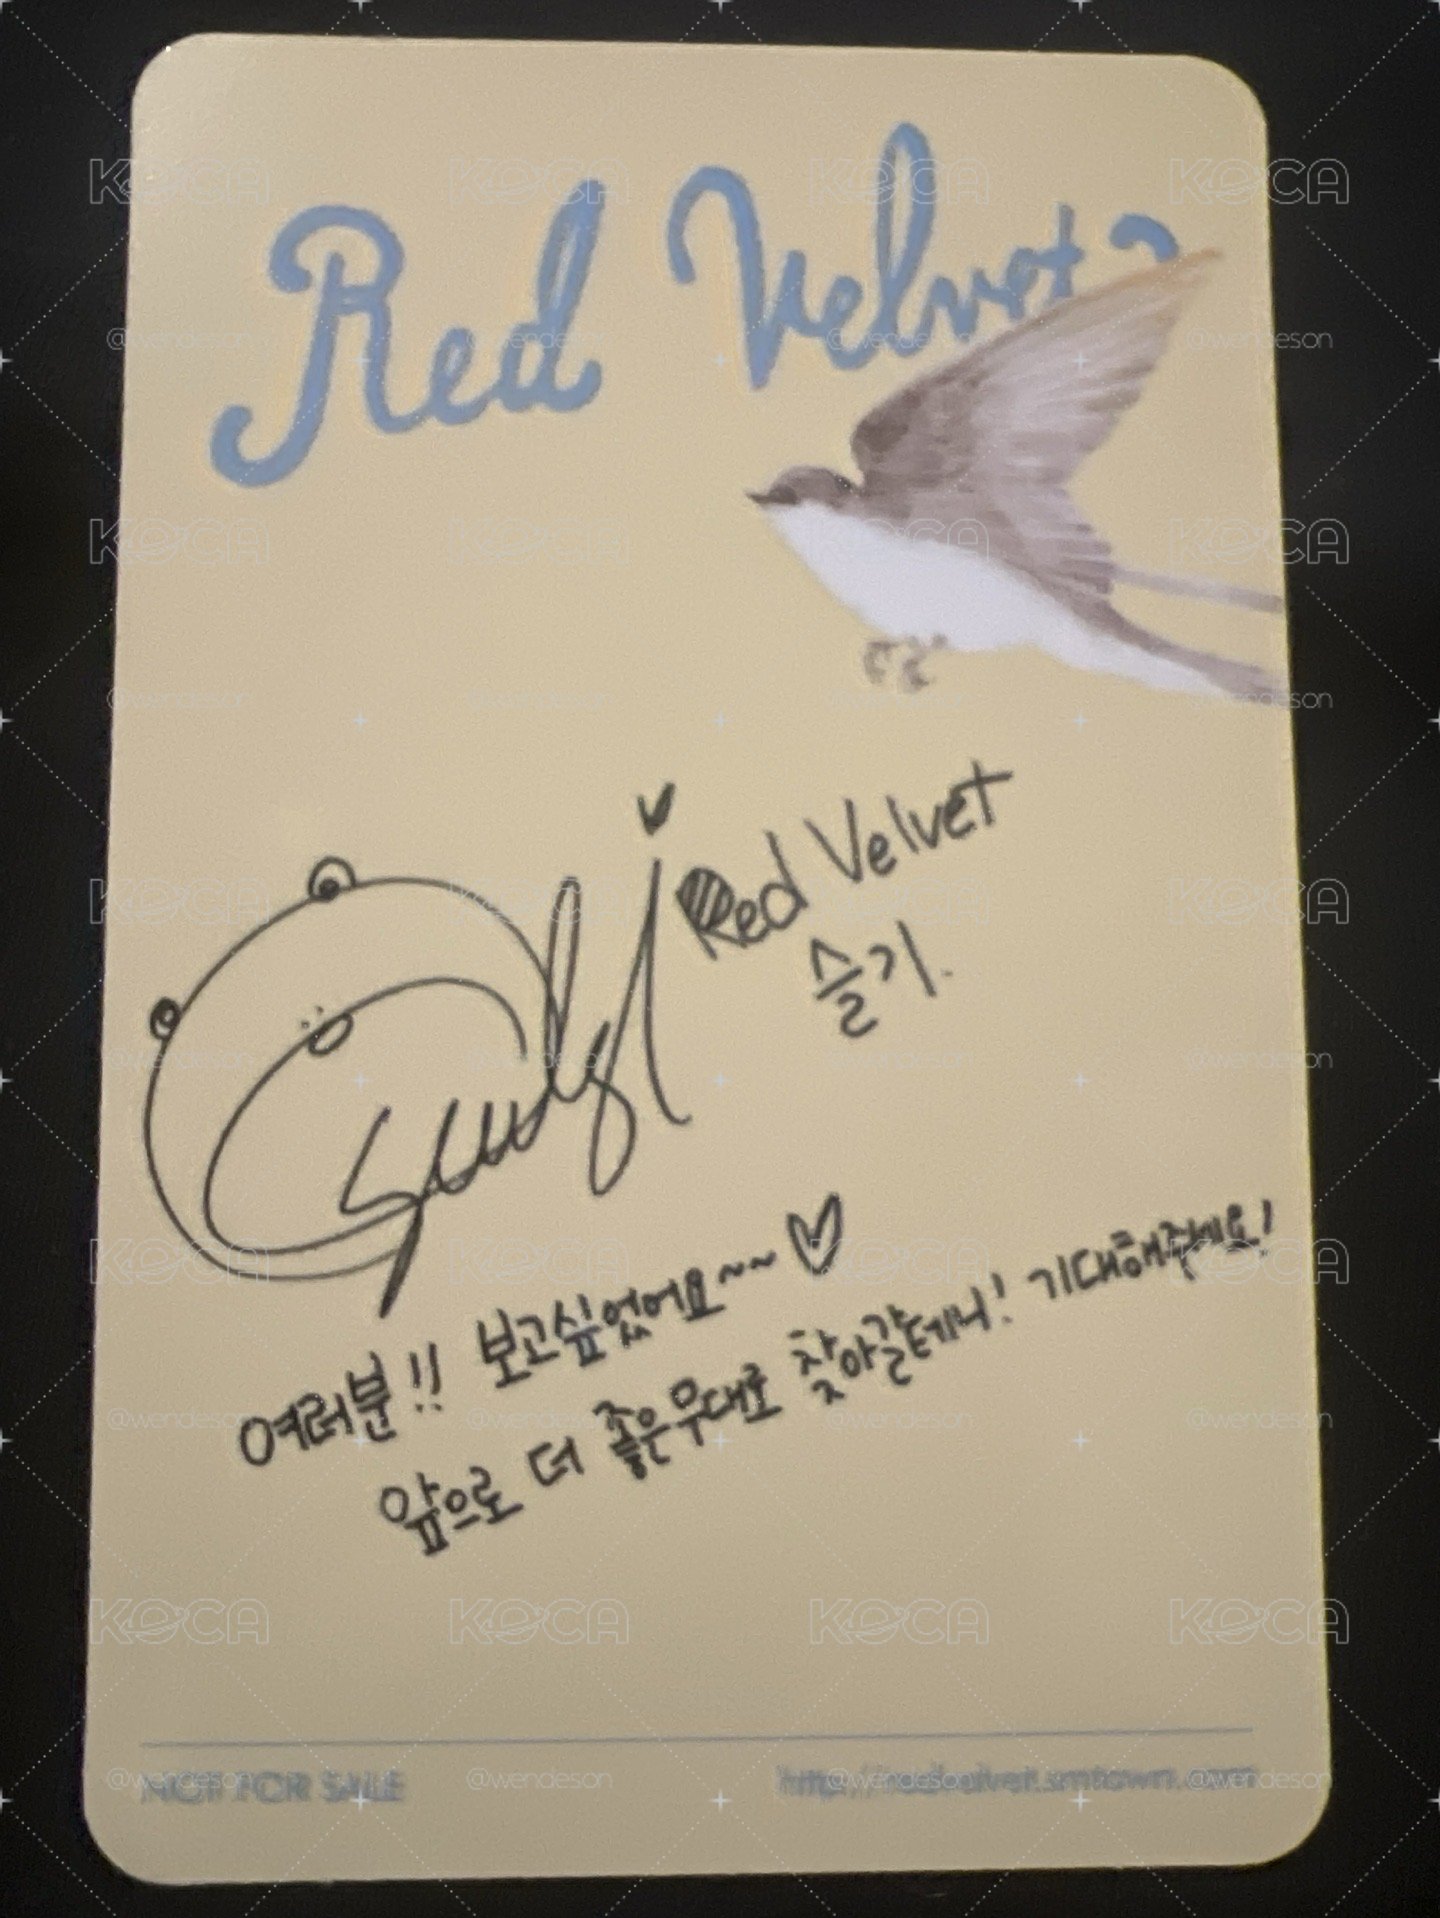 Red Velvet
Red Velvet
슬기.
Seulgi
여러분!! 보고싶었어요~~♡
앞으로 더 좋은무대로 찾아갈테니! 기대해주세요!
NOT FOR SALE
http://redvelvet.smtown.com
KOCA
@wendeson